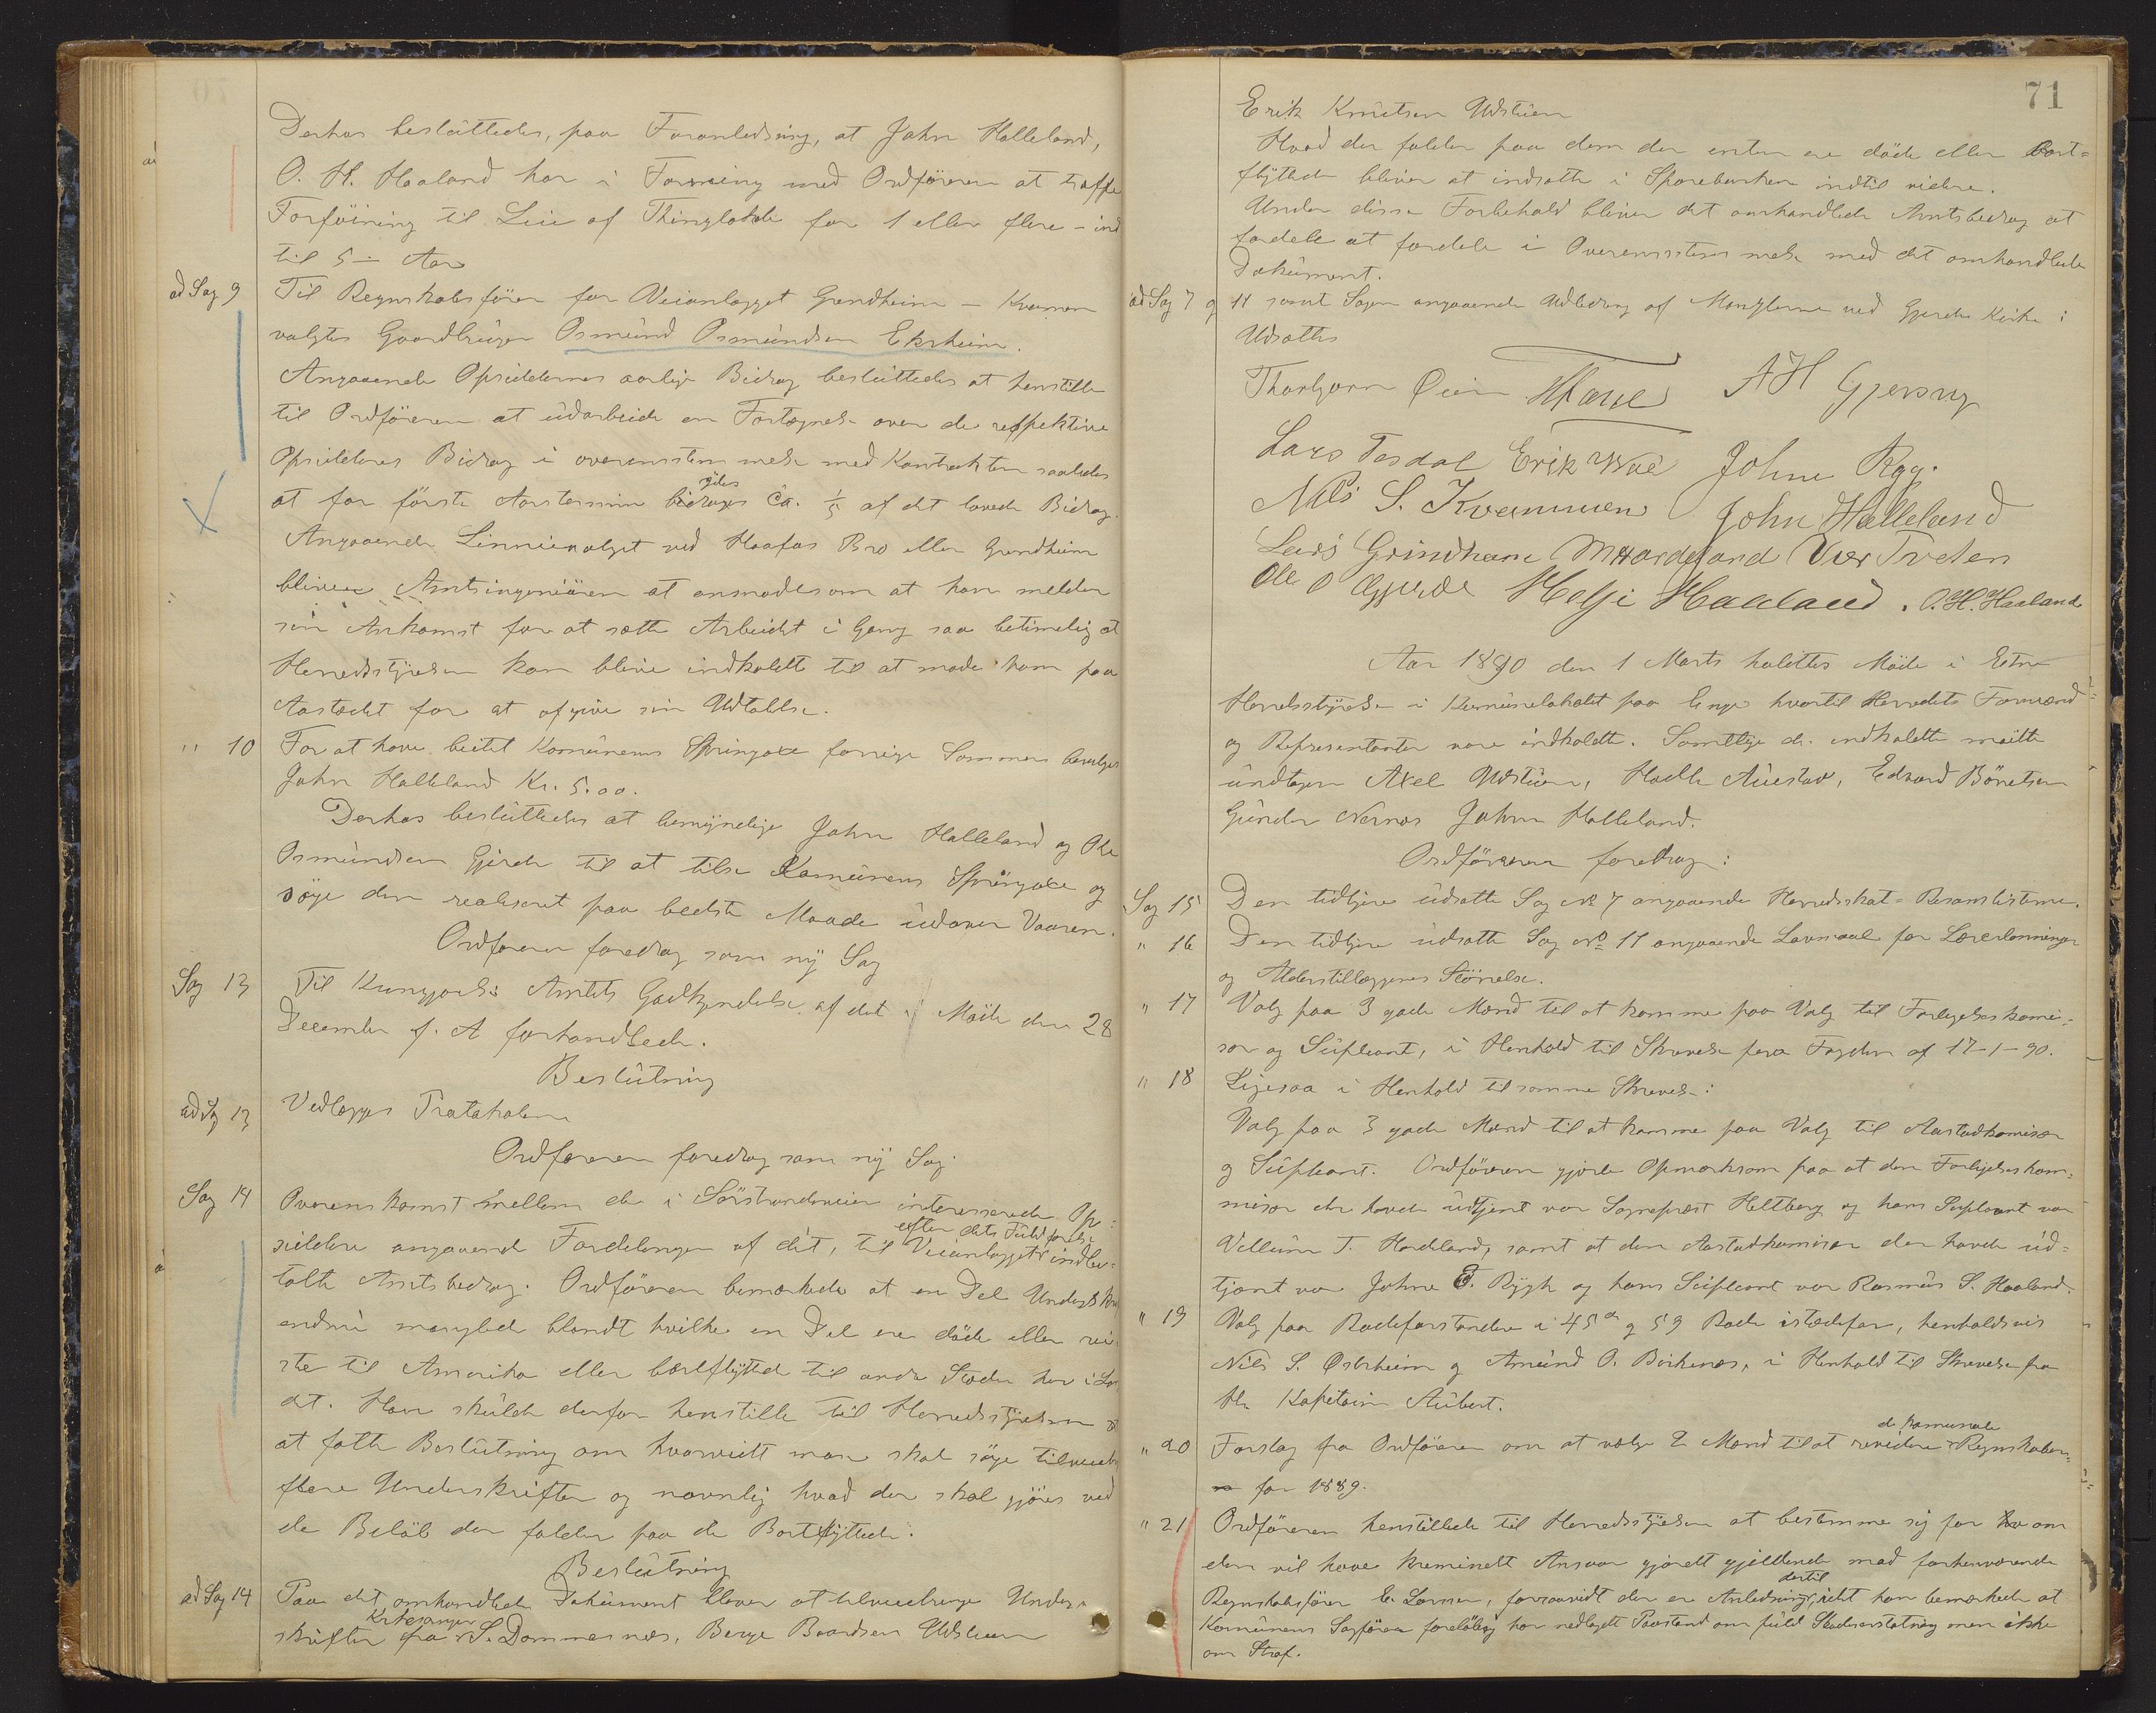 Derhos besluttedes, paa Foranledning, at John Halleland,
O. H. Haaland har i Forening med Ordföreren at træffe
Forföining til Leie af Thinglokale for 1 eller flere - ind
til 5 - Aar
ad Sag 9 Til Regnskabsförer for Veianlægget Grindheim - Kvamen
valgtes Gaardbruger Osmund Osmundsen Ekrheim.
Angaaende Opsiddernes aarlige Bidrag besluttedes at henstille
til Ordföreren at udarbeide en Fortegnelse over de respektive
Opsidderes Bidrag i overensstemmelse med Kontrakten saaledes
at for förste Aarstermin ydes ca. 1/5 af det lovede Bidrag.
Angaaende Linnievalget ved Haafas Bro eller Grindheim
bliver Amtsingeniören at anmode om at han melder
sin Ankomst for at sætte Arbeidet i Gang saa betimelig at
Herredsstyrelsen kan blive indkaldt til at møde ham paa
Aastedet for at afgive sin Udtalelse.
" 10 For at have beitet Komunens Springoxe forrige Sommer bevilges
John Halleland Kr. 5.00.
Derhos besluttedes at bemyndige John Halleland og Ole
Osmundsen Gjerde til at tilse Komunens Springoxe og
søge den realiseret paa bedste Maade udover Vaaren.
Ordføreren foredrog som ny Sag
Sag 13 Til Kundgjørelse Amtets Godkjendelse af det i Møde den 28
December f. A forhandlede.
Beslutning
ad Sag 13 Vedlægges Protokolen
Ordføreren foredrog som ny Sag
Sag 14 Overenskomst mellem de i Sörstrandsveien interesserede Op=
efter dets Fuldførelse
siddere angaaende Fordelingen af det, til Veianlægget indbe=
talte Amtsbidrag. Ordföreren bemærkede at en Del Underskr
endnu manglede blandt hvilke en Del ere døde eller rei
ste til Amerika eller bortflyttede til andre Steder her i Lan
det. Han skulde derfor henstille til Herredsstyrelsen
at fatte Beslutning om hvorvidt man skal söge tilveiebr
flere Underskrifter og navnlig hvad der skal gjöres ved
de Belöb der falder paa de Bortflyttede.
Beslutning
ad Sag 14 Paa det omhandlede Dokument bliver at tilveiebringe Under=
Kirkesanger
skrifter fra S. Dommersnes, Berge Baardsen Udstuen
71
Erik Knutsen Udstuen
Hvad der falder paa dem der enten ere døde eller bort=
flyttede bliver at indsætte i Sparebanken indtil videre.
Under disse Forbehold bliver det omhandlede Amtsbidrag at
fordele at fordele i Overensstemmelse med det omhandlede
Dokument.
ad Sag 7 og 11 samt Sagen angaaende Udbedring af Manglerne ved Gjerde Kirke:
Udsættes
Thorbjørn Øien HFaye AH Gjersvig
Lars Tesdal Erik Wee Johne Ryg.
Nils S. Kvammen John Halleland
Lars Grindheim MHardeland Iver Tveten
Ole O Gjerde Helje Haaland. O. H. Haaland
Aar 1890 den 1 Marts holdtes Møde i Etne
Herredsstyrelse i Kommunelokalet paa Enge hvortil Herredets Formænd
og Representanter vare indkaldte. Samtlige de indkaldte mødte
undtagen Axel Udstuen, Halle Austad, Edvard Børretsen
Gunder Nernes John Halleland.
Ordföreren foredrog:
Sag 15 Den tidligere udsatte Sag No 7 angaaende Herredsskat=Resantelisterne.
" 16 Den tidligere udsatte Sag No 11 angaaende Lovmaal for Lærerlønninger
og Alderstillæggenes Størrelse.
" 17 Valg paa 3 gode Mænd til at komme paa Valg til Forligelseskomi=
sær og Supleant, i Henhold til Skrivelse fra Fogden af 17-1-90.
" 18 Ligesaa i Henhold til samme Skrivelse:
Valg paa 3 gode Mænd til at komme paa Valg til Aastedkomisær
og Supleant. Ordföreren gjorde Opmærksom paa at den Forligelseskom=
misær der havde udtjent var Sognepræst Heltberg og hans Supleant var
Vellum T. Hardeland, samt at den Aastedkomisær der havde ud=
tjent var Johne E. Rygh og hans Supleant var Rasmus S. Haaland.
" 19 Valg paa Rodeforstandere i 45de og 59 Rode istedefor, henholdsvis
Nils S. Østrheim og Amund O. Birkenes, i Henhold til Skrivelse fra
Hr. Kapitain Aubert.
" 20 Forslag fra Ordföreren om at vælge 2 Mænd til at revidere de komunale Regnskaber
for 1889.
" 21 Ordföreren henstillede til Herredsstyrelsen at bestemme sig for om
den vil have kriminelt Ansvar gjordt gjældende mod forhenværende
Regnskabsfører E. Larsen, forsaavidt der er Anledning dertil, idet han bemærkede at
Komunens Sagförer foreløbig har nedlagt Paastand om fuld Skadeserstatning men ikke
om Straf.